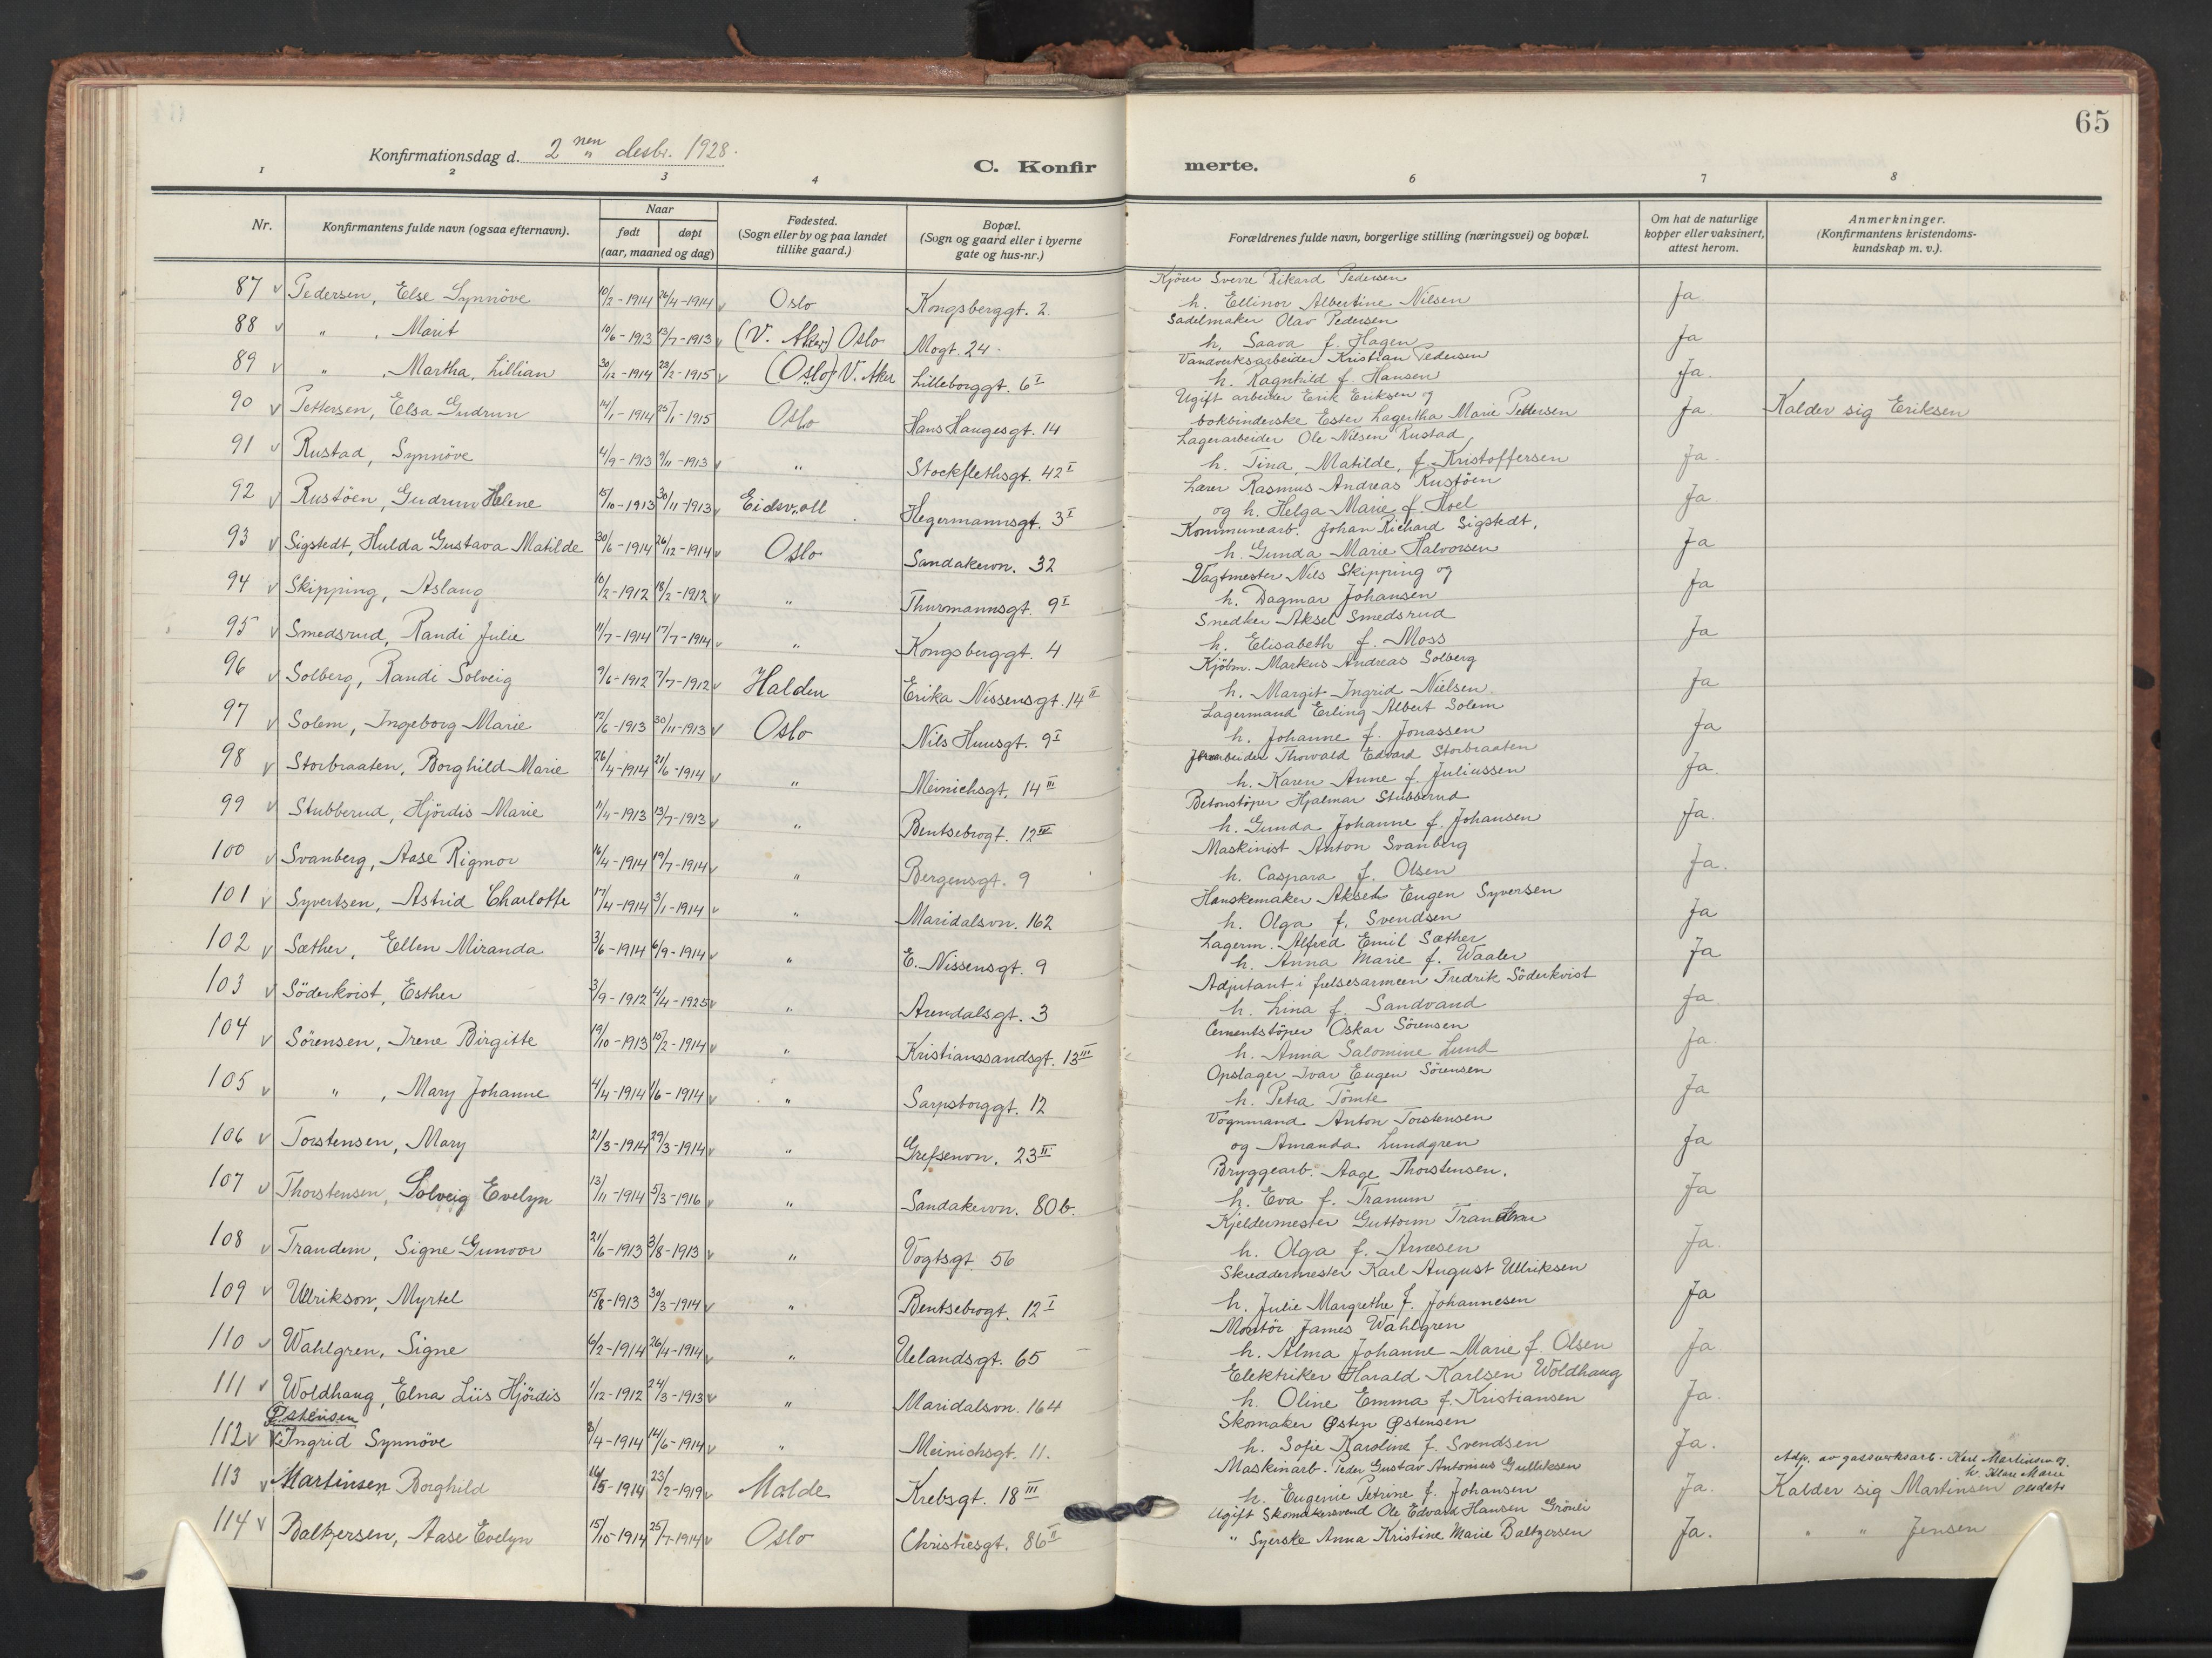 65
Konfirmationsdag d. 2 nen desbr. 1928.
C. Konfirmerte.
1 2 3 4 6 7 8
Nr. | Konfirmantens fulde navn (ogsaa efternavn). | Naar født døpt (aar, maaned og dag) | Fødested. (Sogn eller by og paa landet tillike gaard.) | Bopæl. (Sogn og gaard eller i byerne gate og hus-nr.) | Forældrenes fulde navn, borgerlige stilling (næringsvei) og bopæl. | Om hat de naturlige kopper eller vaksinert, attest herom. | Anmerkninger. (Konfirmantens kristendomskundskap m. v.).
87 v Pedersen, Else Synnöve 10/2-1914 26/4-1914 v Oslo Kongsberggt. 2. Kjörer Sverre Rikard Pedersen h. Ellinor Albertine Nilsen Ja
88 v " , Marit 10/6-1913 13/7-1913 v (V. Aker) Oslo Mogt. 24. Sadelmaker Olav Pedersen h. Saava f. Hagen Ja
89 v " , Martha, Lillian 30/12-1914 23/2-1915 v (Oslo) V. Aker Lilleborggt. 6 I Vandverksarbeider Kristian Pedersen h. Ragnhild f. Hansen Ja.
90 v Pettersen, Elsa Gudrun 14/1-1914 25/1-1915 Oslo Hans Haugesgt. 14 Ugift arbeider Erik Eriksen og bokbinderske Ester Lagertha Marie Pettersen Ja. Kalder sig Eriksen
91 v Rustad, Synnöve 4/9-1913 9/11-1913 v " Stockflethsgt. 42 I Lagerarbeider Ole Nilsen Rustad, h. Tina, Matilde, f. Kristoffersen Ja.
92 v Rustöen, Gudrun Helene 15/10-1913 30/11-1913 v Eidsvoll Hegermannsgt. 3 I Lærer Rasmus Andreas Rustöen og h. Helga Marie f. Hoel Ja
93 v Sigstedt, Hulda Gustava Matilde 30/6-1914 26/12-1914 v Oslo Sandakervn. 32 Kommunearb. Johan Richard Sigstedt, h. Gunda Marie Halvorsen Ja
94 v Skipping, Aslaug 10/2-1912 18/2-1912 v " Thurmannsgt. 9 I Vagtmester Nils Skipping og h. Dagmar Johansen Ja
95 v Smedsrud, Randi Julie 11/7-1914 17/7-1914 v " Kongsberggt. 4 Snedker Aksel Smedsrud h. Elisabeth f. Moss Ja
96 v Solberg, Randi Solveig 9/6-1912 7/7-1912 v Halden Erika Nissensgt. 14 II Kjöbm. Markus Andreas Solberg h. Margit Ingrid Nielsen. Ja
97 v Solem, Ingeborg Marie 12/6-1913 30/11-1913 v Oslo Nils Huusgt. 9 I Lagermand Erling Albert Solem h. Johanne f. Jonassen Ja
98 v Storbraaten, Borghild Marie 26/4-1914 21/6-1914 v " Meinichsgt. 14 III Thorvald Edvard Storbraaten h. Karen Anne f. Juliussen Ja.
99 v Stubberud, Hjördis Marie 11/4-1913 13/7-1913 v " Bentsebrogt. 12 III Betonstöper Hjalmar Stubberud h. Gunda Johanne f. Johansen Ja.
100 v Svanberg, Aase Rigmor 16/4-1914 19/7-1914 v " Bergensgt. 9 Maskinist Anton Svanberg h. Caspara f. Olsen Ja.
101 v Syvertsen, Astrid Charlotte 17/4-1914 3/1-1914 v " Maridalsvn. 162 Hanskemaker Aksel Eugen Syversen h. Olga f. Svendsen Ja
102 v Sæther, Ellen Miranda 3/6-1914 6/9-1914 v " E. Nissensgt. 9 Lagerm. Alfred Emil Sæther h. Anna Marie f. Waaler Ja
103 v Söderkvist, Esther 3/9-1912 4/4-1925 v " Arendalsgt. 3 Adjutant i frelsesarmeen Fredrik Söderkvist h. Lina f. Sandvand Ja
104 v Sörensen, Irene Birgitte 19/10-1913 15/2-1914 v " Kristianssandsgt. 13 III Cementstöper Oskar Sörensen h. Anna Salomine Lund Ja.
105 v " , Mary Johanne 4/4-1914 1/6-1914 v " Sarpsborggt. 12 Opslager Ivar Eugen Sörensen h. Petra Tömte Ja
106 v Torstensen, Mary 21/3-1914 29/3-1914 v " Grefsenvn. 23 II Vognmand Anton Torstensen og Amanda Lundgren Ja
107 v Thorstensen, Solveig Evelyn 13/11-1914 5/3-1916 v " Sandakervn. 80 b. Bryggearb. Aage Thorstensen. h. Eva f. Tranum Ja
108 v Trandem, Signe Gunvor 21/6-1913 3/8-1913 v " Vogtsgt. 56 Kjeldermester Guttorm Trandem h. Olga f. Arnesen Ja.
109 v Ullrikson, Myrtel 15/8-1913 30/3-1914 v " Bentsebrogt. 12 I Skreddermester Karl August Ullriksen h. Julie Margrethe f. Johannesen Ja
110 v Wahlgren, Signe 6/2-1914 26/4-1914 v " Uelandsgt. 65 Montör James Wahlgren h. Alma Johanne Marie f. Olsen Ja
111 v Woldhaug, Elna Liis Hjördis 1/12-1912 24/3-1913 v " Maridalsvn. 164 Elektriker Harald Karlsen Woldhaug h. Oline Emma f. Kristiansen Ja.
112 v Østensen Ingrid Synnöve 8/4-1914 14/6-1914 v " Meinichsgt. 11. Skomaker Østen Østensen h. Sofie Karoline f. Svendsen Ja.
113 v Martinsen Borghild 16/5-1914 23/2-1919 v Molde Krebsgt. 18 III Maskinarb. Peder Gustav Antonius Gulliksen h. Eugenie Petrine f. Johansen Ja. Adp. av gassverksarb. Karl Martinsen og h. Marie Kalder sig Martinsen
114 v Baltzersen, Aase Evelyn 15/10-1914 25/7-1914 v Oslo Christiesgt. 86 II Ugift Skomakersvend Ole Edvard Hansen Grönli " Syerske Anna Kristine Marie Baltzersen Ja. " " Jensen